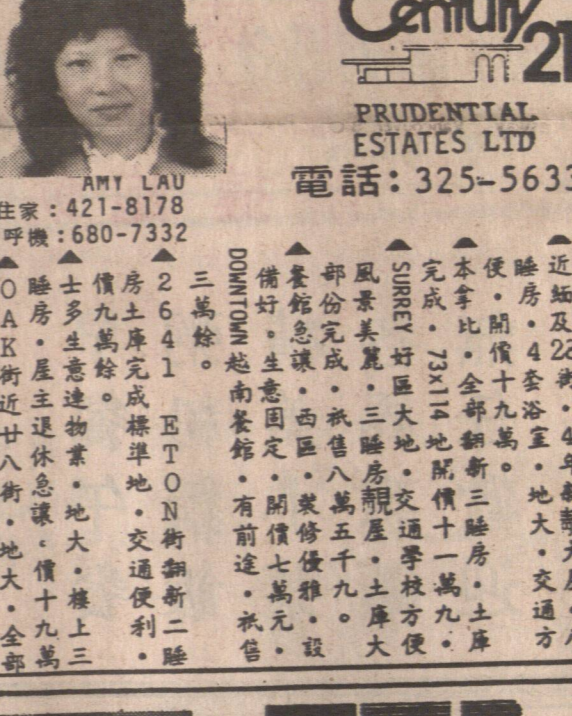 Century 21
PRUDENTIAL
ESTATES LTD
電話：325-5633
AMY LAU
住家：421-8178
呼機：680-7332
▲近緬及28街・4年新
睡房・4套浴室・地大・交通方
便・開價十九萬。
▲本拿比・全部翻新三睡房・土庫
完成・73x114地開價十一萬九・
▲SURREY好區大地・交通學校方便
風景美麗・三睡房靚屋・土庫大
部份完成・祇售八萬五千九。
▲餐館急讓・西區・裝修優雅・設
備好・生意固定・開價七萬元・
DOWNTOWN越南餐館・有前途・祇售
三萬餘。
▲2641 ETON街翻新二睡
房土庫完成標準地・交通便利・
價九萬餘。
▲士多生意連物業・地大・樓上三
睡房・屋主退休急讓・價十九萬
▲OAK街近廿八街・地大・全部